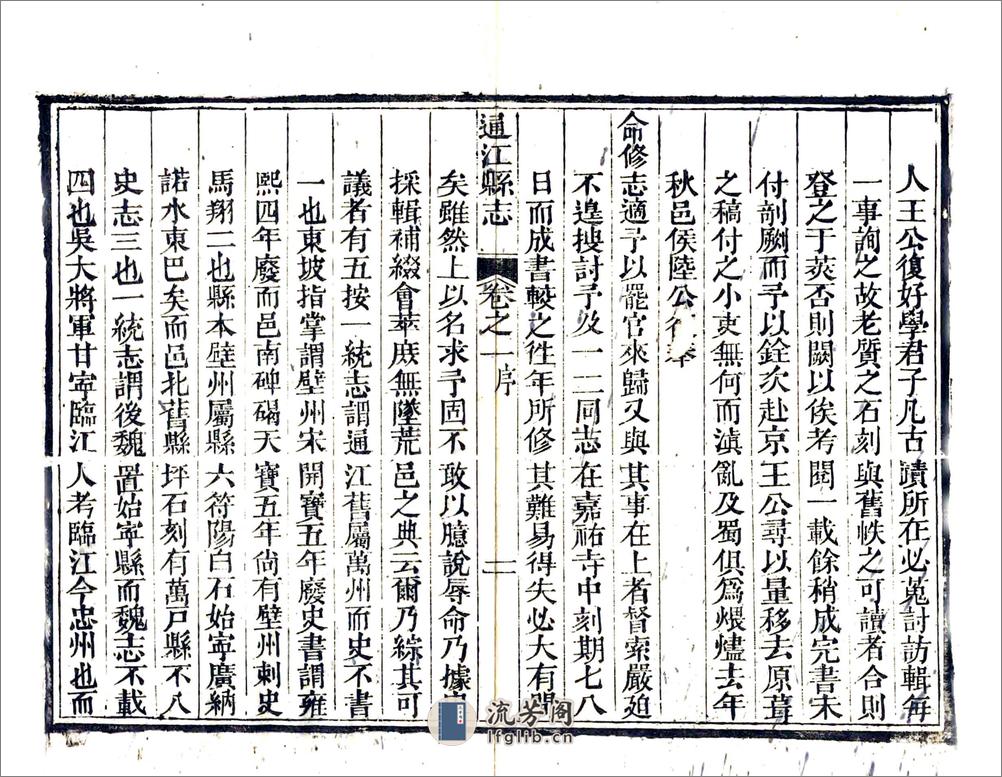 人王公復好學君子凡古蹟所在必蒐討訪輯每
一事詢之故老質之石刻與舊帙之可讀者合則
登之于莢否則闕以俟考閱一載餘稍成完書未
付剞劂而予以銓次赴京王公尋以量移去原葺
之稿付之小吏無何而滇亂及蜀俱爲煨燼去年
秋邑侯陸公奉
命修志適予以罷官來歸又與其事在上者督索嚴廹
不遑搜討予及一二同志在嘉祐寺中刻期七八
日而成書較之徃年所修其難易得失必大有間
通江縣志
卷之一序
二
矣雖然上以名求予固不敢以臆說辱命乃據
採輯補綴會萃庻無墜荒邑之典云爾乃綜其可
議者有五按一統志謂通江舊屬萬州而史不書
一也東坡指掌謂壁州宋開寶五年廢史書謂雍
熙四年廢而邑南碑碣天寶五年尚有壁州刺史
馬翔二也縣本壁州屬縣六符陽白石始寧廣納
諾水東巴矣而邑北舊縣坪石刻有萬戸縣不入
史志三也一統志謂後魏置始寧縣而魏志不載
四也吳大將軍甘寧臨江人考臨江今忠州也而
流芳阁
lfglib.cn